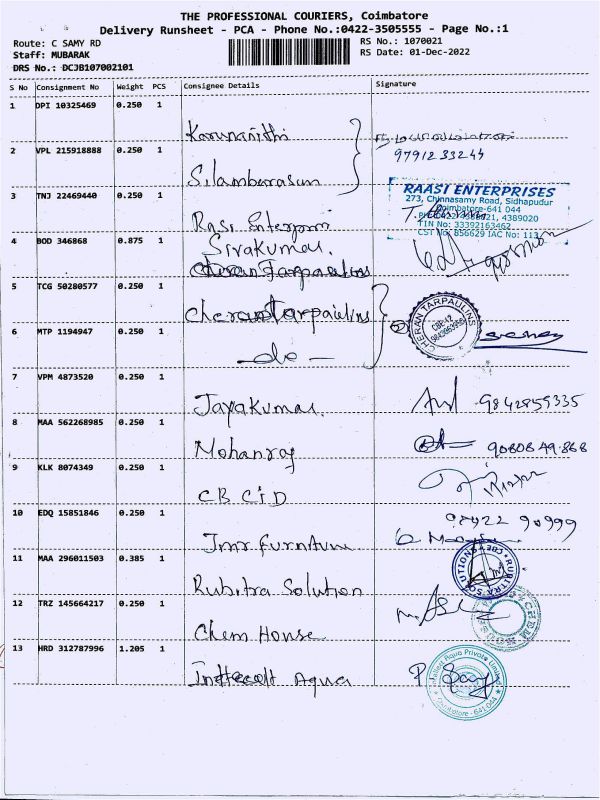 THE PROFESSIONAL COURIERS, Coimbatore
Delivery Runsheet - PCA - Phone No.:0422-3505555 - Page No.:1
Route: C SAMY RD
RS No.: 1070021
Staff: MUBARAK
RS Date: 01-Dec-2022
DRS No.: DCJB107002101
S No Consignment No Weight PCS Consignee Details Signature
1 DPI 10325469 0.250 1
Karunanithi
2 VPL 215918888 0.250 1
9791233244
Silambarasun
3 TNJ 22469440 0.250 1
RAASI ENTERPRISES
273, Chinnasamy Road, Sidhapudur
Coimbatore-641 044
4389020
TIN No: 33392163462
CST No: 856629 IAC No: 113
Rasi Enterprri
4 BOD 346868 0.875 1
Sivakumar.
Cheran Tarpaulins
5 TCG 50280577 0.250 1
Cheran Tarpaulins
CHERAN TARPAULINS
6 MTP 1194947 0.250 1
- do -
7 VPM 4873520 0.250 1
Jayakumar.
9842859335
8 MAA 562268985 0.250 1
Mohanraj
90808 49.868
9 KLK 8074349 0.250 1
CB CID
10 EDQ 15851846 0.250 1
90999
Jmr Furniture
11 MAA 296011503 0.385 1
RUBITRA SOLUTIONS
Rubitra Solution
12 TRZ 145664217 0.250 1
Chem House
13 HRD 312787996 1.205 1
Aqua Private Limited
Coimbatore - 641 044
Aqua